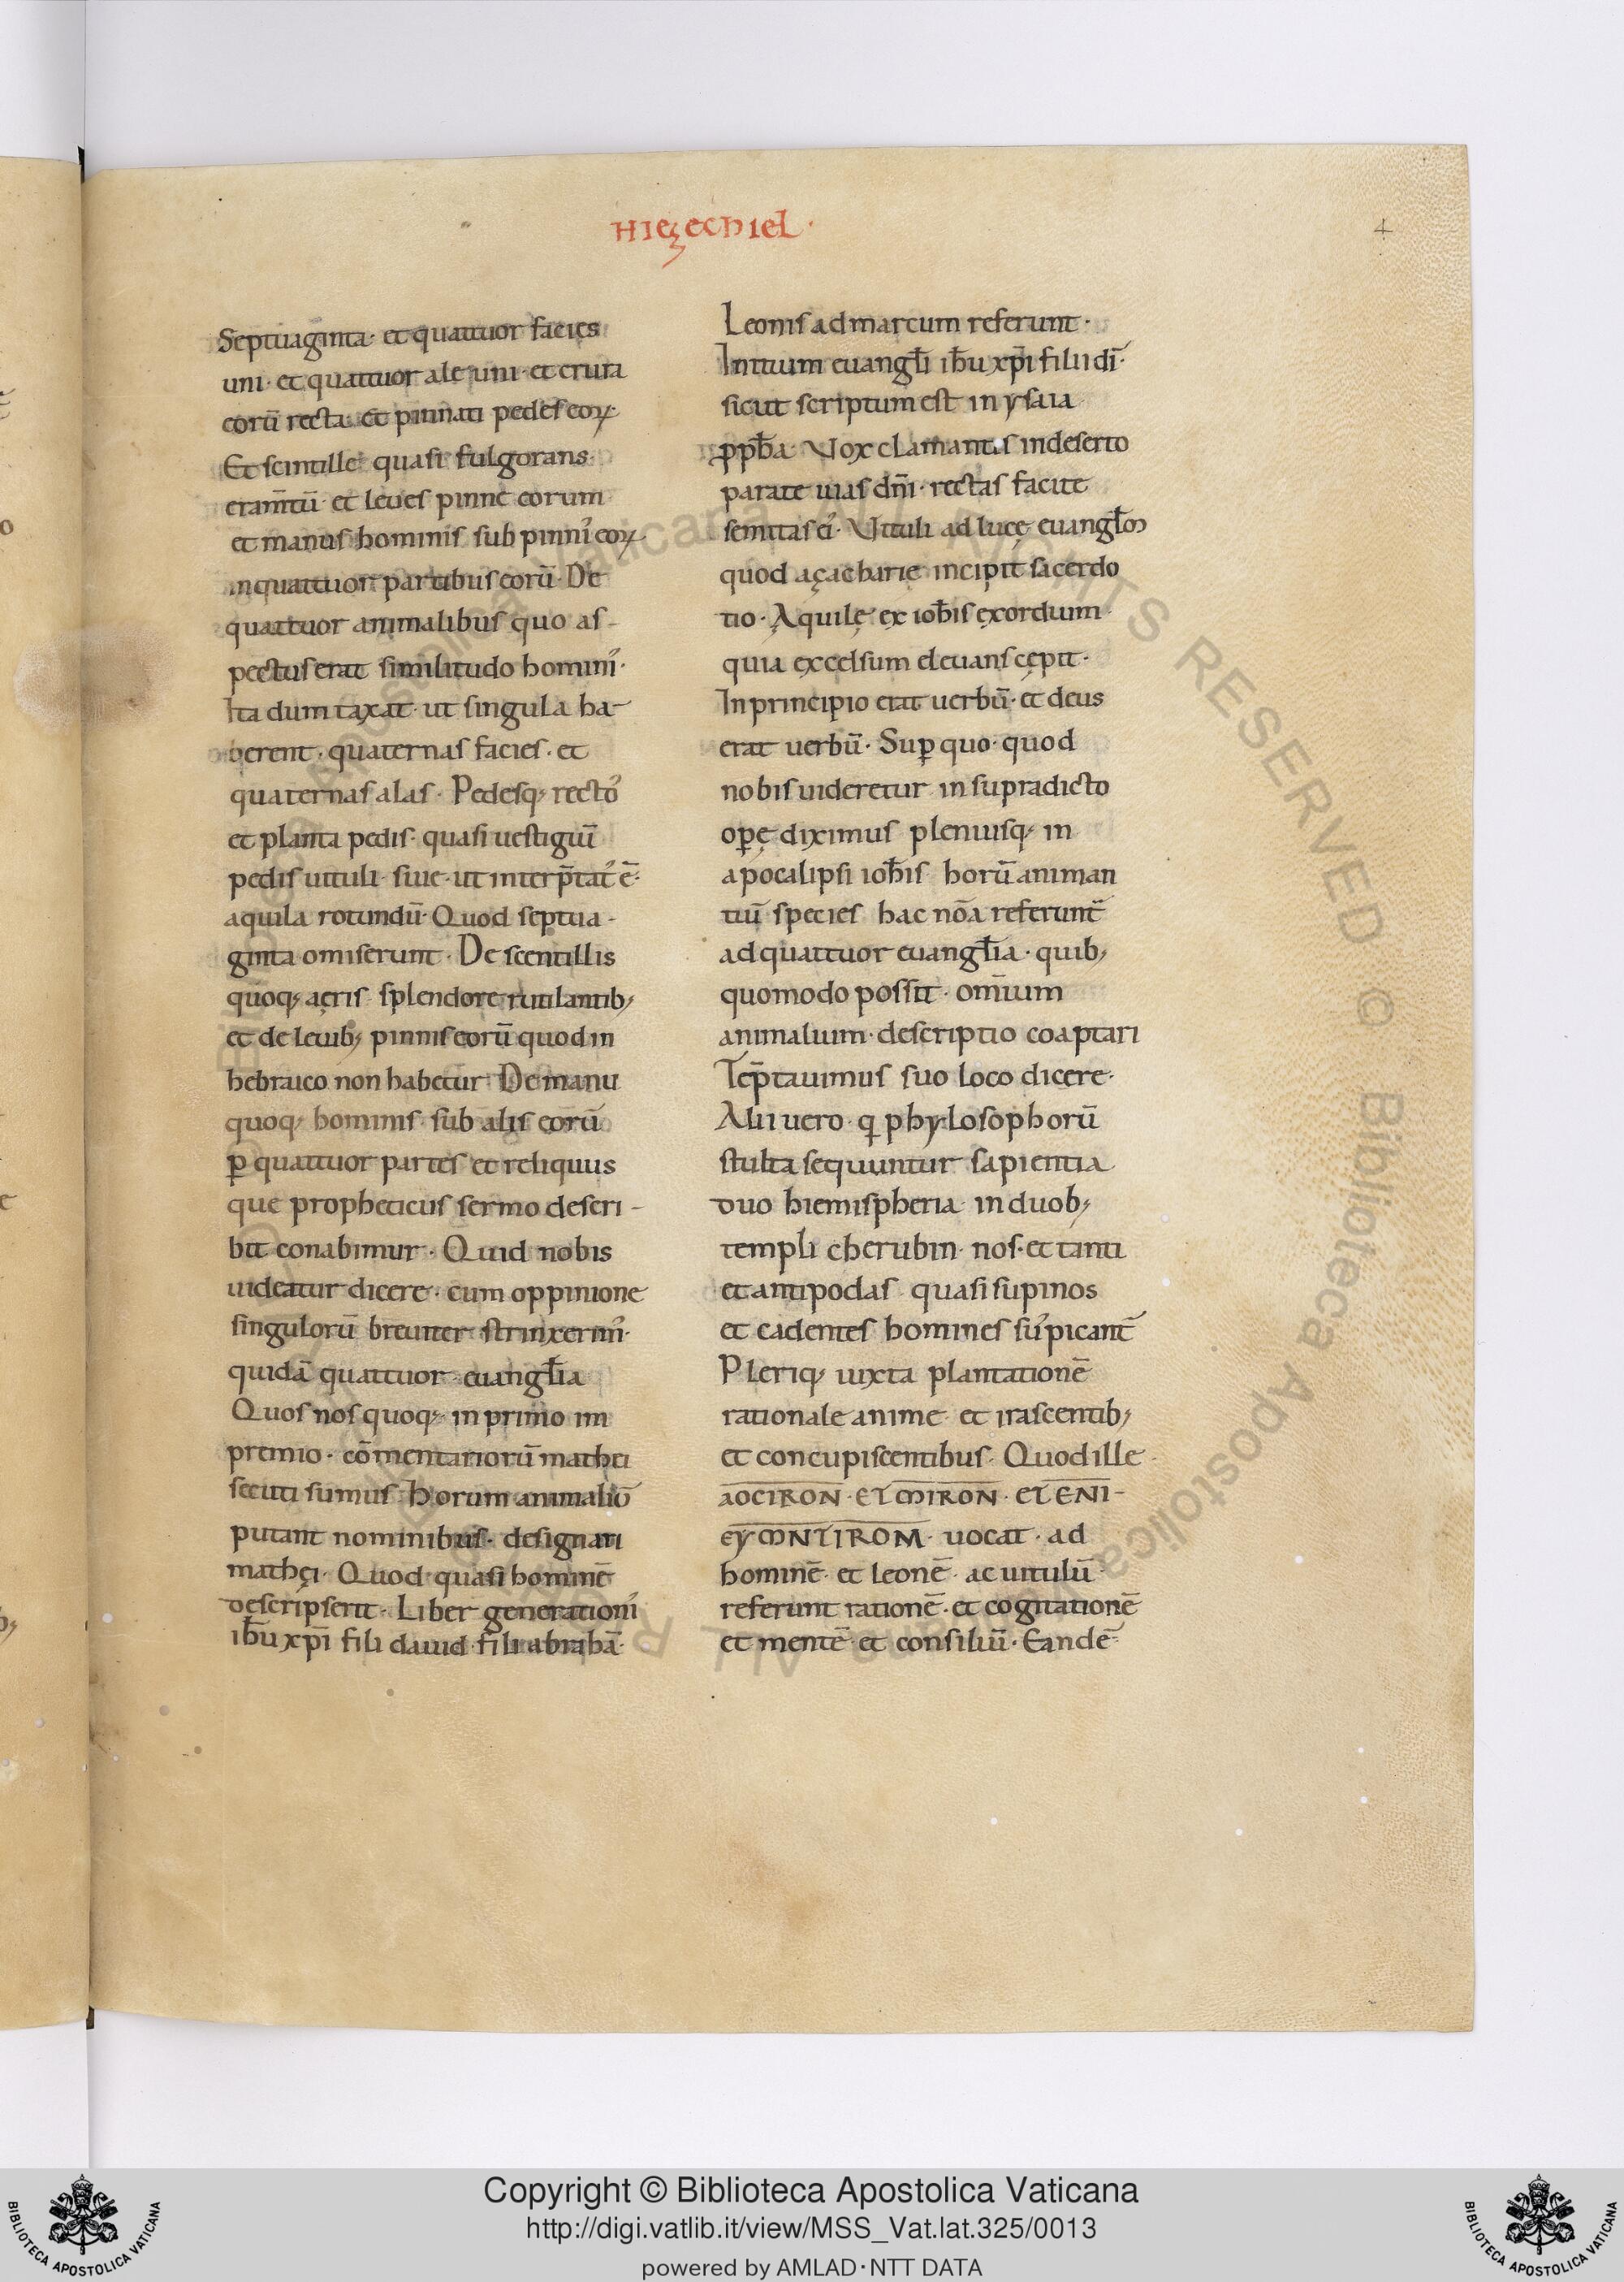 Hiezechiel·
4
Septuaginta· et quattuor facies
uni· et quattuor ale uni· et crura
corū recta· et pinnati pedes eoꝝ·
Et scintille quasi fulgorans·
eram̄tū· et leues pinne eorum
et manus hominis sub pinni᾽ eoꝝ
inquattuor partibus eorū· De
quattuor animalibus quo as-
pectus erat similitudo homini᾽·
Ita dum taxat· ut singula ha-
berent· quaternas facies· et
quaternas alas· Pedesq; recto᾽
et planta pedis· quasi uestigiū
pedis uituli· siue· ut interp̄tat᾽ ē·
aquila rotundū· Quod septua-
ginta omiserunt· De scentillis
quoq; aęris splendore rutilantib;
et de leuib; pinnis eorū quod in
hebraico non habetur· De manu
quoq; hominis· sub alis eorū
ꝑ quattuor partes et reliquus
que propheticus sermo descri-
bit conabimur· Quid nobis
uideatur dicere· cum oppinione
singulorū breuiter strinxerim᾽·
quidā quattuor euangl̄ia
Quos nos quoq; in primo im
premio· cōmentariorū mathei
secuti sumus· Horum animaliū
putant nominibus· designari
mathęi· Quod quasi hominē
descripserit· Liber generationi᾽
ih̄u xp̄i fili dauid fili abrahā·
Leonis ad marcum referunt·
Initium euangl̄i ih̄u xp̄i filii dī·
sicut scriptum est in ysaia
ꝓph̄a· Vox clamantis indeserto
parate uias dn̄i· rectas facite
semitas ei᾽· Vituli ad lucę euangl̄m
quod açacharie incipit sacerdo
tio· Aquilę ex ioh̄is exordium·
quia excelsum eleuans cępit·
Inprincipio erat uerbū· et deus
erat uerbū· Suꝑ quo· quod
nobis uideretur in supradicto
oꝑę diximus pleniusq; in
apocalipsi ioh̄is horū animan
tiū species hac nōa referunt̄
ad quattuor euangl̄ia· quib;
quomodo possit· om̄ium
animalium· descriptio coaptari
Tep̄tauimus suo loco dicere·
Alii uero· q̄ phylosophorū
stulta sequuntur sapientia
duo hiemispheria in duob;
templi cherubin· nos· et tanti
et antipodas quasi supinos
et cadentes homines su᾽picant̄
Pleriq; iuxta plantationē
rationale anime et irascentib;
et concupiscentibus· Quod ille
aociron· et miron· et eni-
eymntirom· uocat· ad
hominē· et leonē· ac uitulū
referunt rationē· et cogitationē
et mentē· et consiliū· Eandē
Copyright © Biblioteca Apostolica Vaticana
http://digi.vatlib.it/view/MSS_Vat.lat.325/0013
powered by AMLAD·NTT DATA